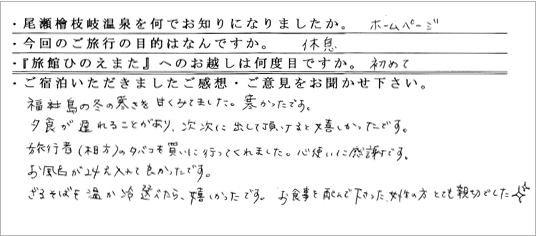 ・尾瀬檜枝岐温泉を何でお知りになりましたか。 ホームページ
・今回のご旅行の目的はなんですか。 休息
・『旅館ひのえまた』へのお越しは何度目ですか。 初めて
・ご宿泊いただきましたご感想・ご意見をお聞かせ下さい。
福島の冬の寒さを甘くみてました。寒かったです。
夕食が遅れることがあり、次次に出して頂けると嬉しかったです。
旅行者(相方)のタバコを買いに行ってくれました。心使いに感謝です。
お風呂が24h入れて良かったです。
ざるそばを温か冷選べたら、嬉しかったです。 お食事を運んで下さった女性の方とても親切でした